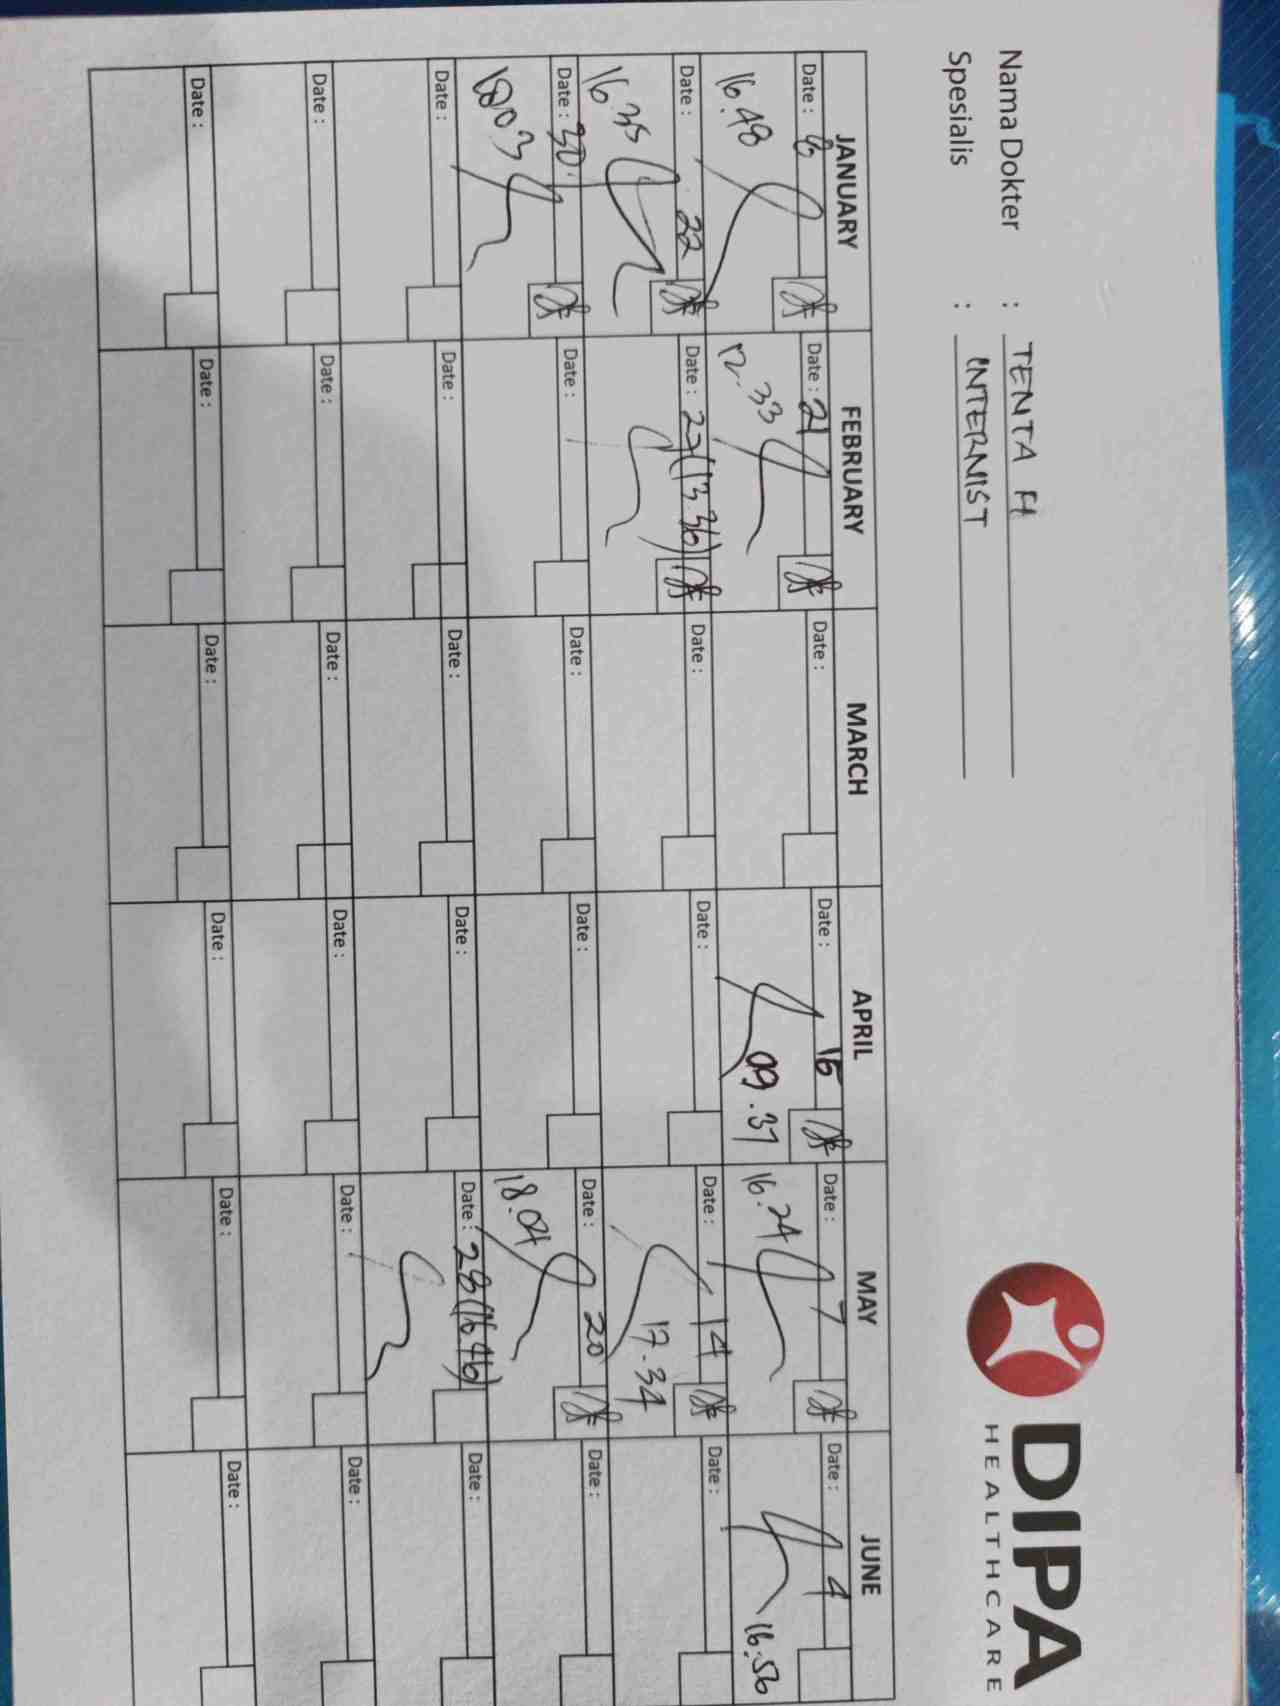 Nama Dokter : TENTA H
Spesialis : INTERNIST
DIPA
HEALTHCARE
JANUARY FEBRUARY MARCH APRIL MAY JUNE
Date : 8 Date : 21 Date : Date : 16 Date : 7 Date : 4
16.48 12.33 09.37 16.24 16.56
Date : 22 Date : 27 (13.36) Date : Date : Date : 14 Date :
16.35 17.34
Date : 30 Date : Date : Date : Date : 20 Date :
18.03 18.04
Date : Date : Date : Date : Date : 28 (16.46) Date :
Date : Date : Date : Date : Date : Date :
Date : Date : Date : Date : Date : Date :